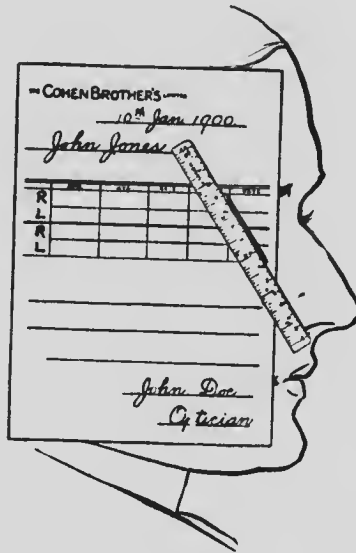 COHEN BROTHER'S
10th Jan 1900
John Jones
R
L
R
L
John Doe
Optician